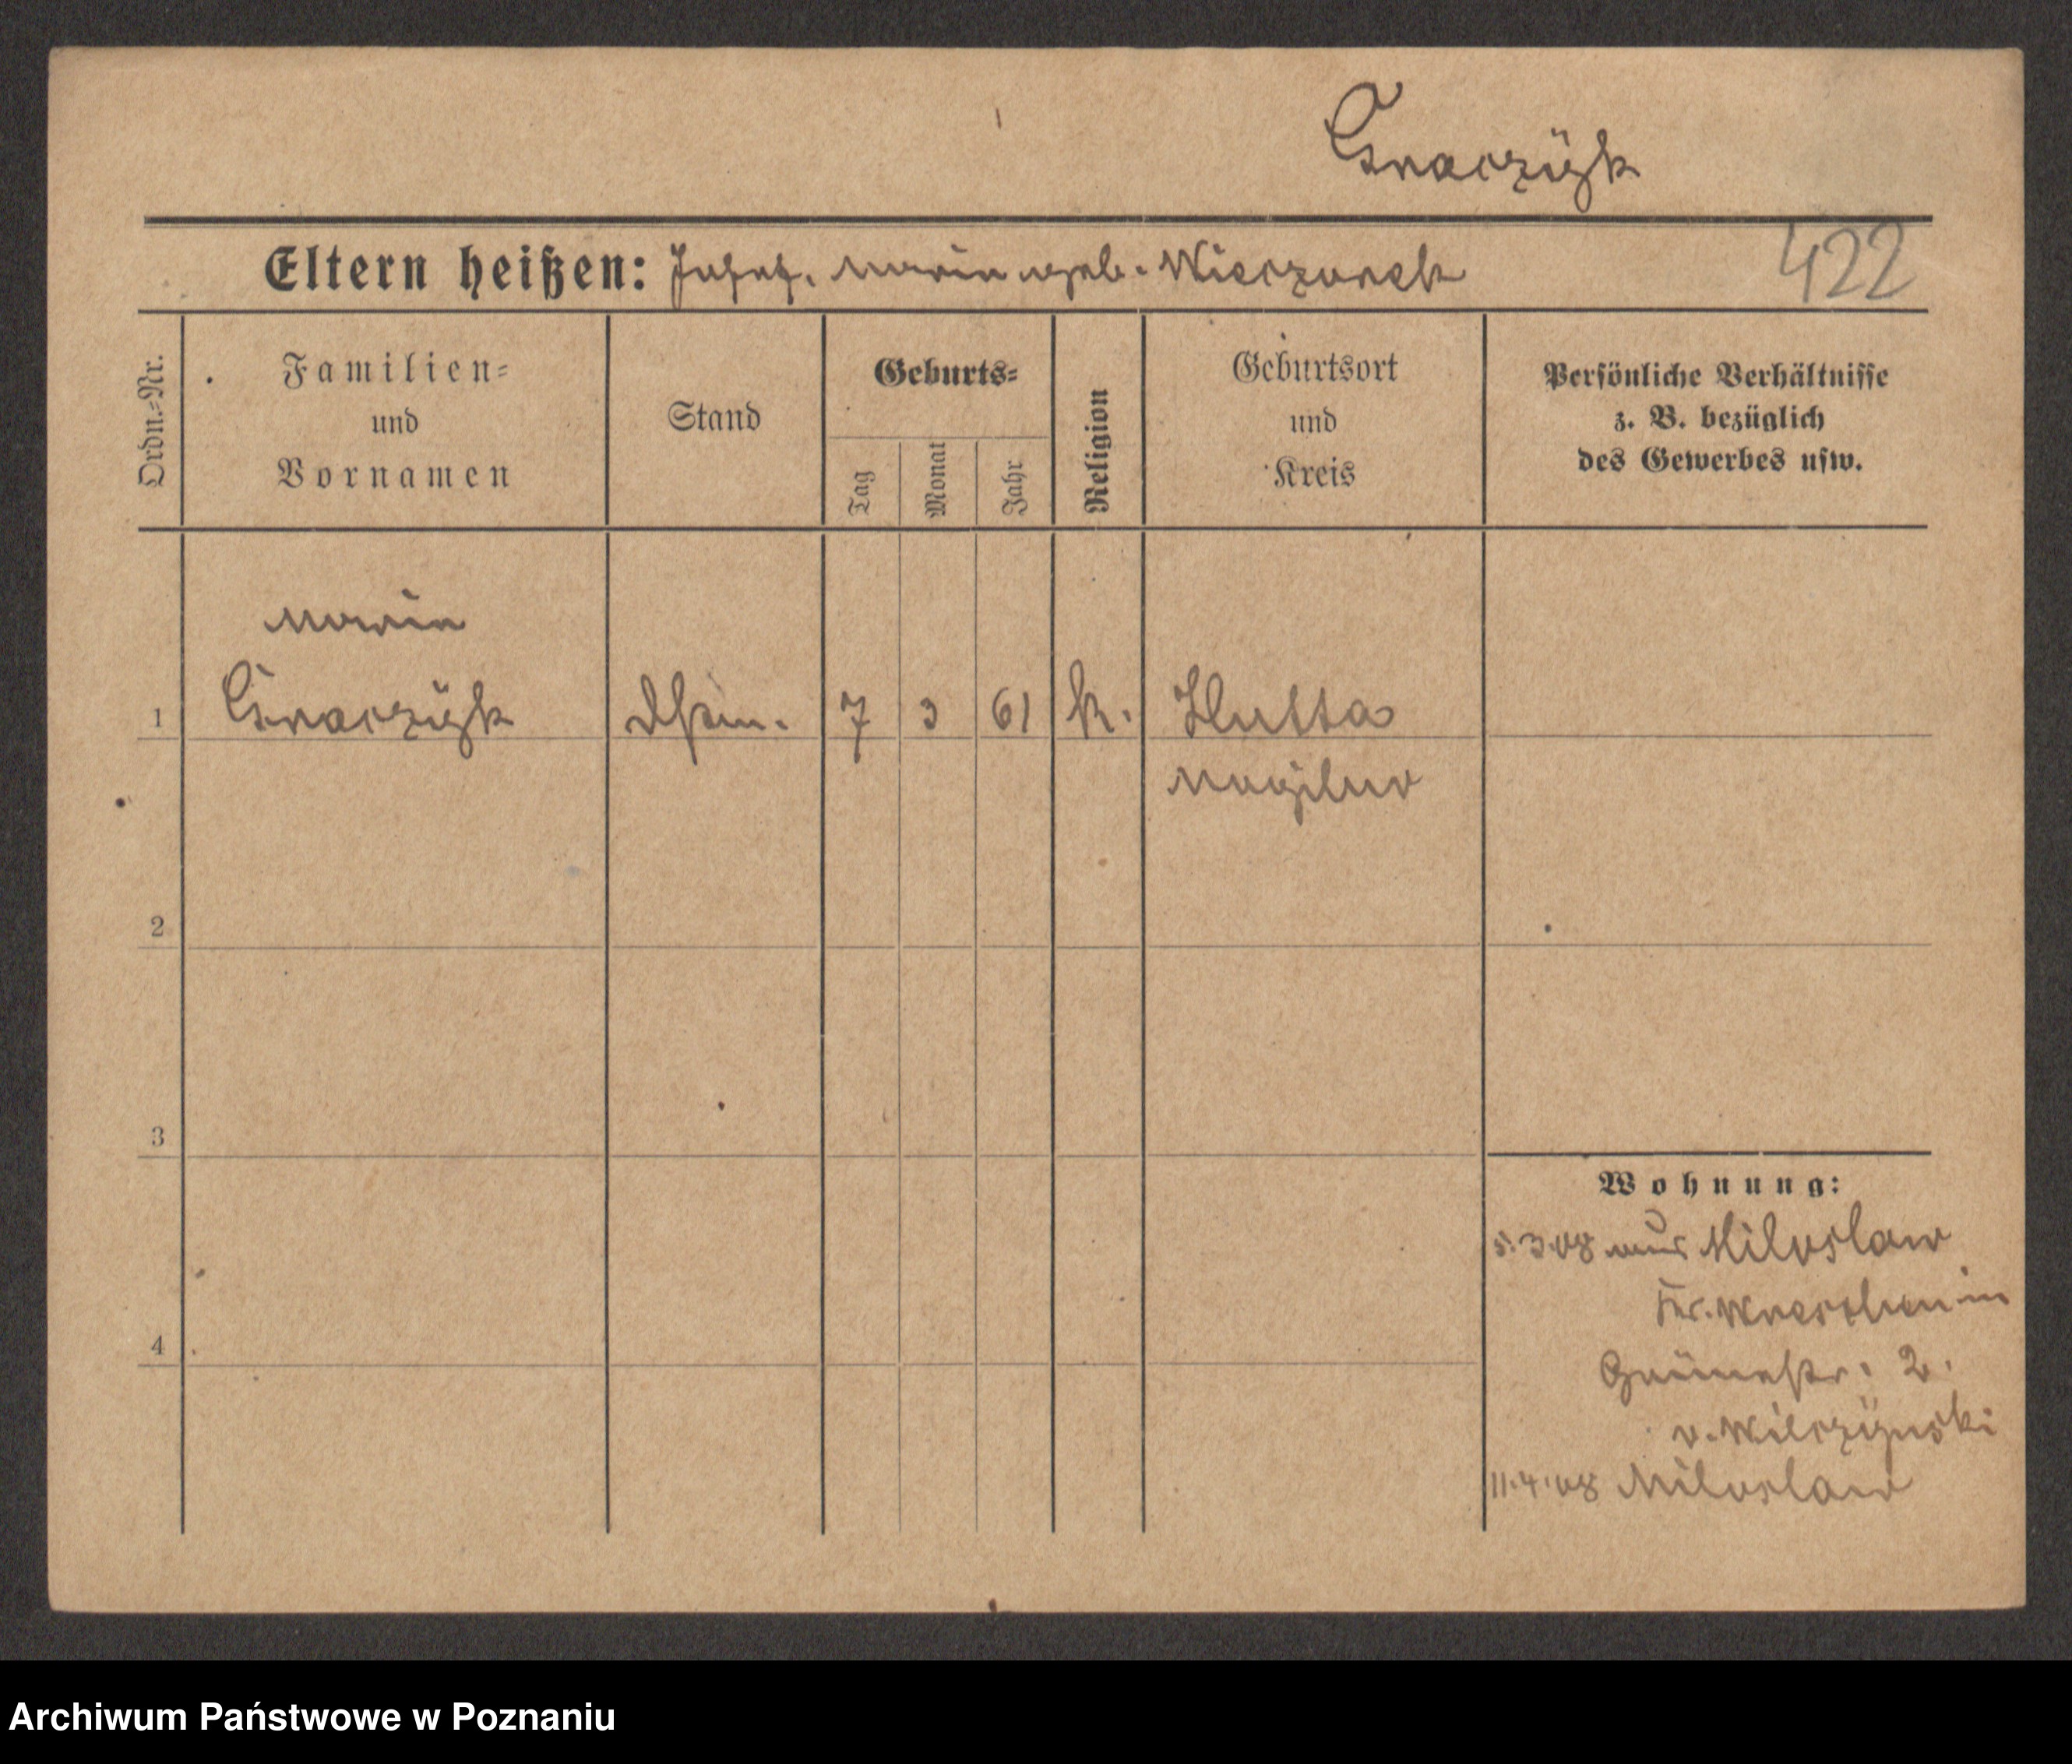 Gnaczÿk
Eltern heißen: Josef. Maria geb. Wieczorek
422
Ordn.=Nr.
Familien=
und
Vornamen
Stand
Geburts=
Tag
Monat
Jahr
Religion
Geburtsort
und
Kreis
Persönliche Verhältnisse
z. B. bezüglich
des Gewerbes usw.
Maria
1 Gnaczÿk 7 3 61 k. Hutta
Mogilno
2
3
Wohnung:
5.3.08 aus Miloslaw
Kr. Wreschen in
4
Grünestr. 2.
v. Wilczÿnski
11.4.08 Miloslaw
Archiwum Państwowe w Poznaniu